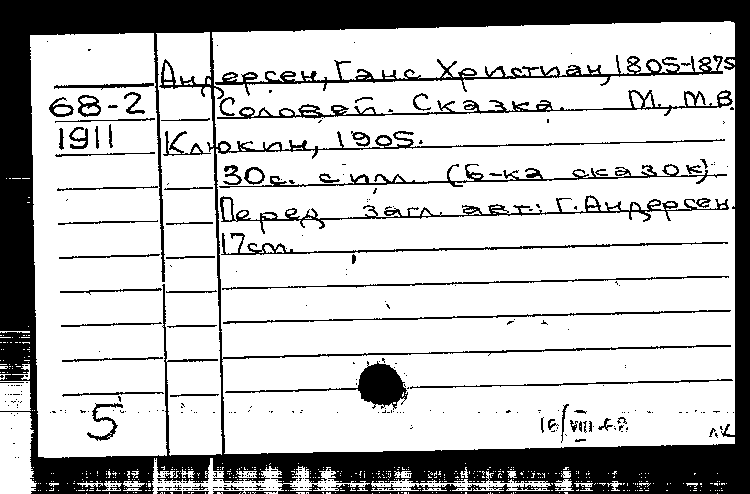 Андерсен, Ганс Христиан, 1805-1875
68-2 Соловей. Сказка. М., М.В.
1911 Клюкин, 1905.
30с. с илл. (Б-ка сказок)
Перед загл. авт.: Г. Андерсен.
17 см.
5
16/VIII-68
ЛК